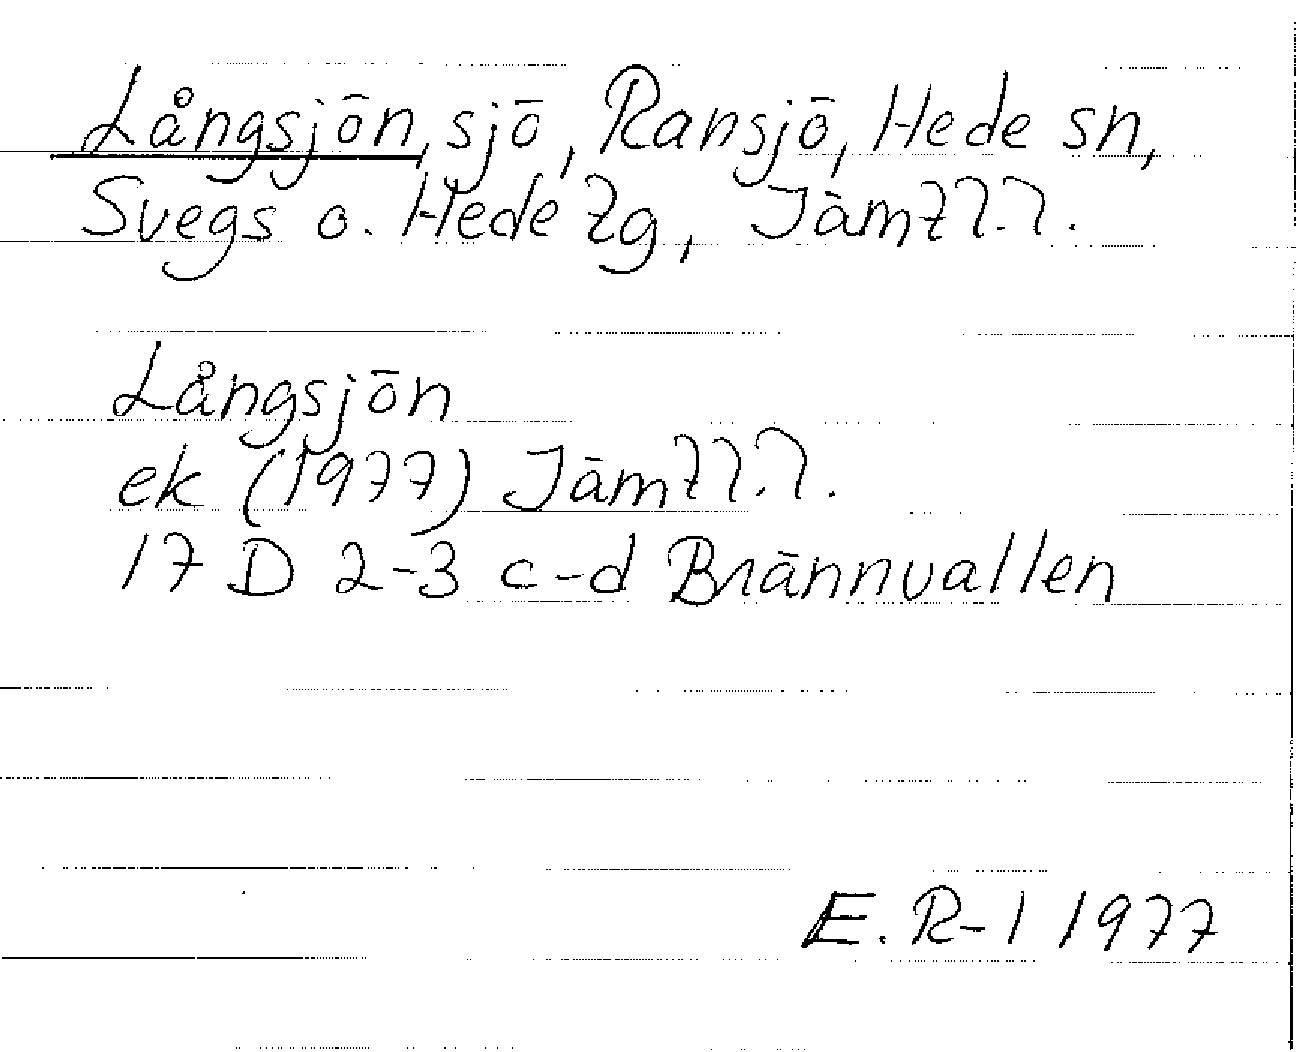 Långsjön, sjö, Ransjö, Hede sn,
Svegs o. Hede tg, Jämtl.l.
Långsjön
ek (1977) Jämtl.l.
17 D 2-3 c-d Brännvallen
E. R-l 1977